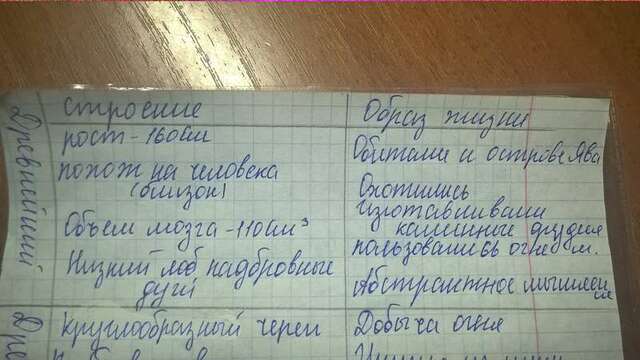 Древнейший
Строение
рост - 160см
похож на человека
(близок)
Объём мозга - 1100см³
Низкий лоб надбровные
дуги
Круглообразный череп
Образ жизни
Обитали и острове Ява
Охотились
изготавливали
каменные орудия
пользовались огнем.
Абстрактное мышлен
ие
Добыча огня